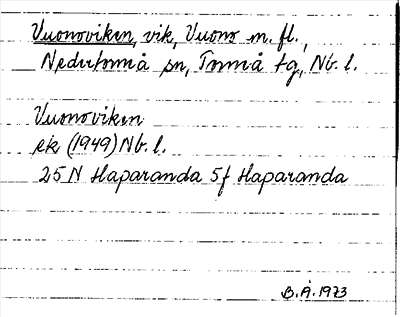 Vuonoviken, vik, Vuono m. fl.,
Nedertorneå sn, Torneå tg, Nb. l.
Vuonoviken
ek (1949) Nb. l.
25 N Haparanda 5f Haparanda
B.Å. 1973